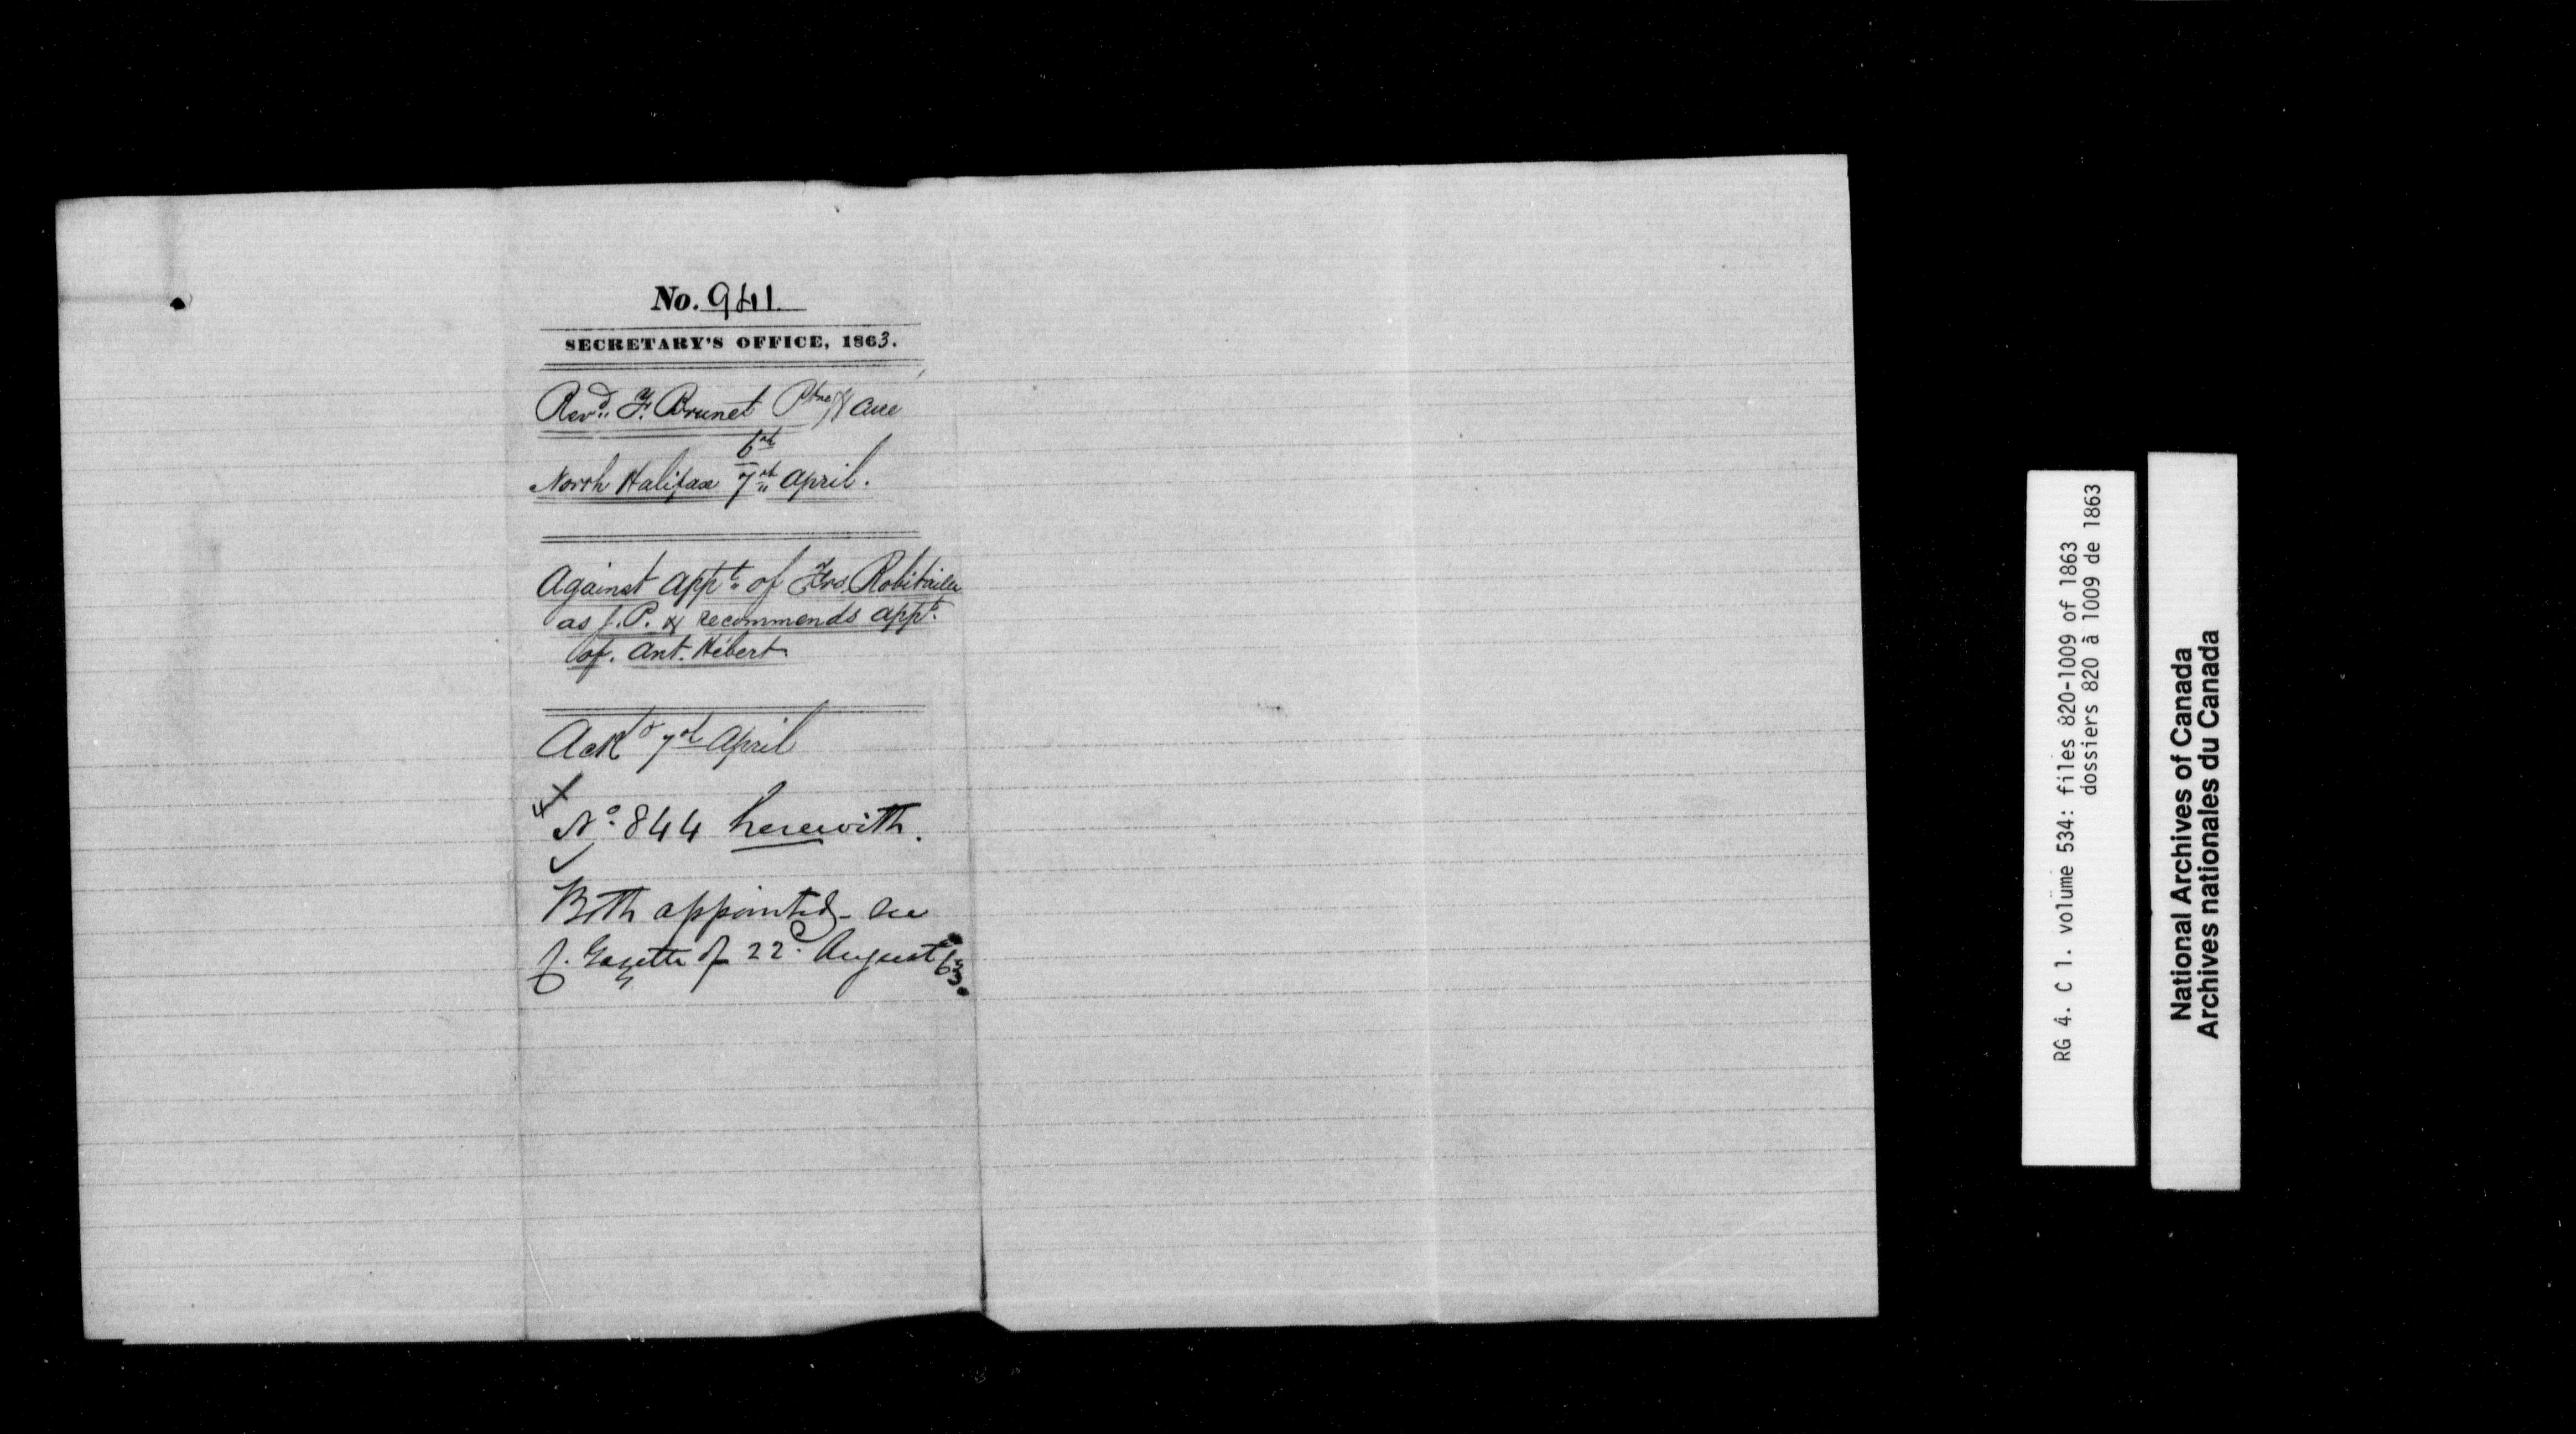 No. 941.
SECRETARY'S OFFICE, 1863.
Revd. F. Brunet Ptre & Cure
6th
North Halifax 7th April.
Against appt. of Frs. Robitaille
as J.P. & recommends appt.
of. Ant. Hébert
Ackd 7th April
No. 844 herewith.
Both appointed - see
Gazette of 22d. August 63.
RG 4. C 1. volume 534: files 820-1009 of 1863
dossiers 820 à 1009 de 1863
National Archives of Canada
Archives nationales du Canada